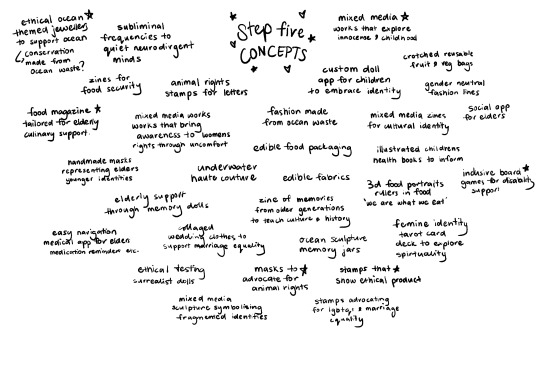 Step five
CONCEPTS
ethical ocean
themed jewellery
to support ocean
conservation
made from
ocean waste?
subliminal
frequencies to
quiet neurodivergent
minds
mixed media
works that explore
innocense & childhood
crotched reusable
fruit & veg bags
zines for
food security
animal rights
stamps for letters
custom doll
app for children
to embrace identity
gender neutral
fashion lines
food magazine
tailored for elderly
culinary support.
mixed media works
works that bring
awareness to womens
rights through uncomfort
fashion made
from ocean waste
mixed media zines
for cultural identity
social app
for elders
edible food packaging
illustrated childrens
health books to inform
handmade masks
representing elders
younger identities
underwater
haute couture
edible fabrics
3d food portraits
rulers in food
'we are what we eat'
inclusive board
games for disability
support
elderly support
through memory dolls
zine of memories
from older generations
to teach culture & history
easy navigation
medical app for elders
medication reminders etc.
collaged
wedding clothes to
support marriage equality
ocean sculpture
memory jars
femine identity
tarot card
deck to explore
spirtuality
ethical testing
surrealist dolls
masks to
advocate for
animal rights
stamps that
show ethical product
mixed media
sculpture symbolising
fragmened identities
stamps advocating
for lgbtqi & marriage
equality